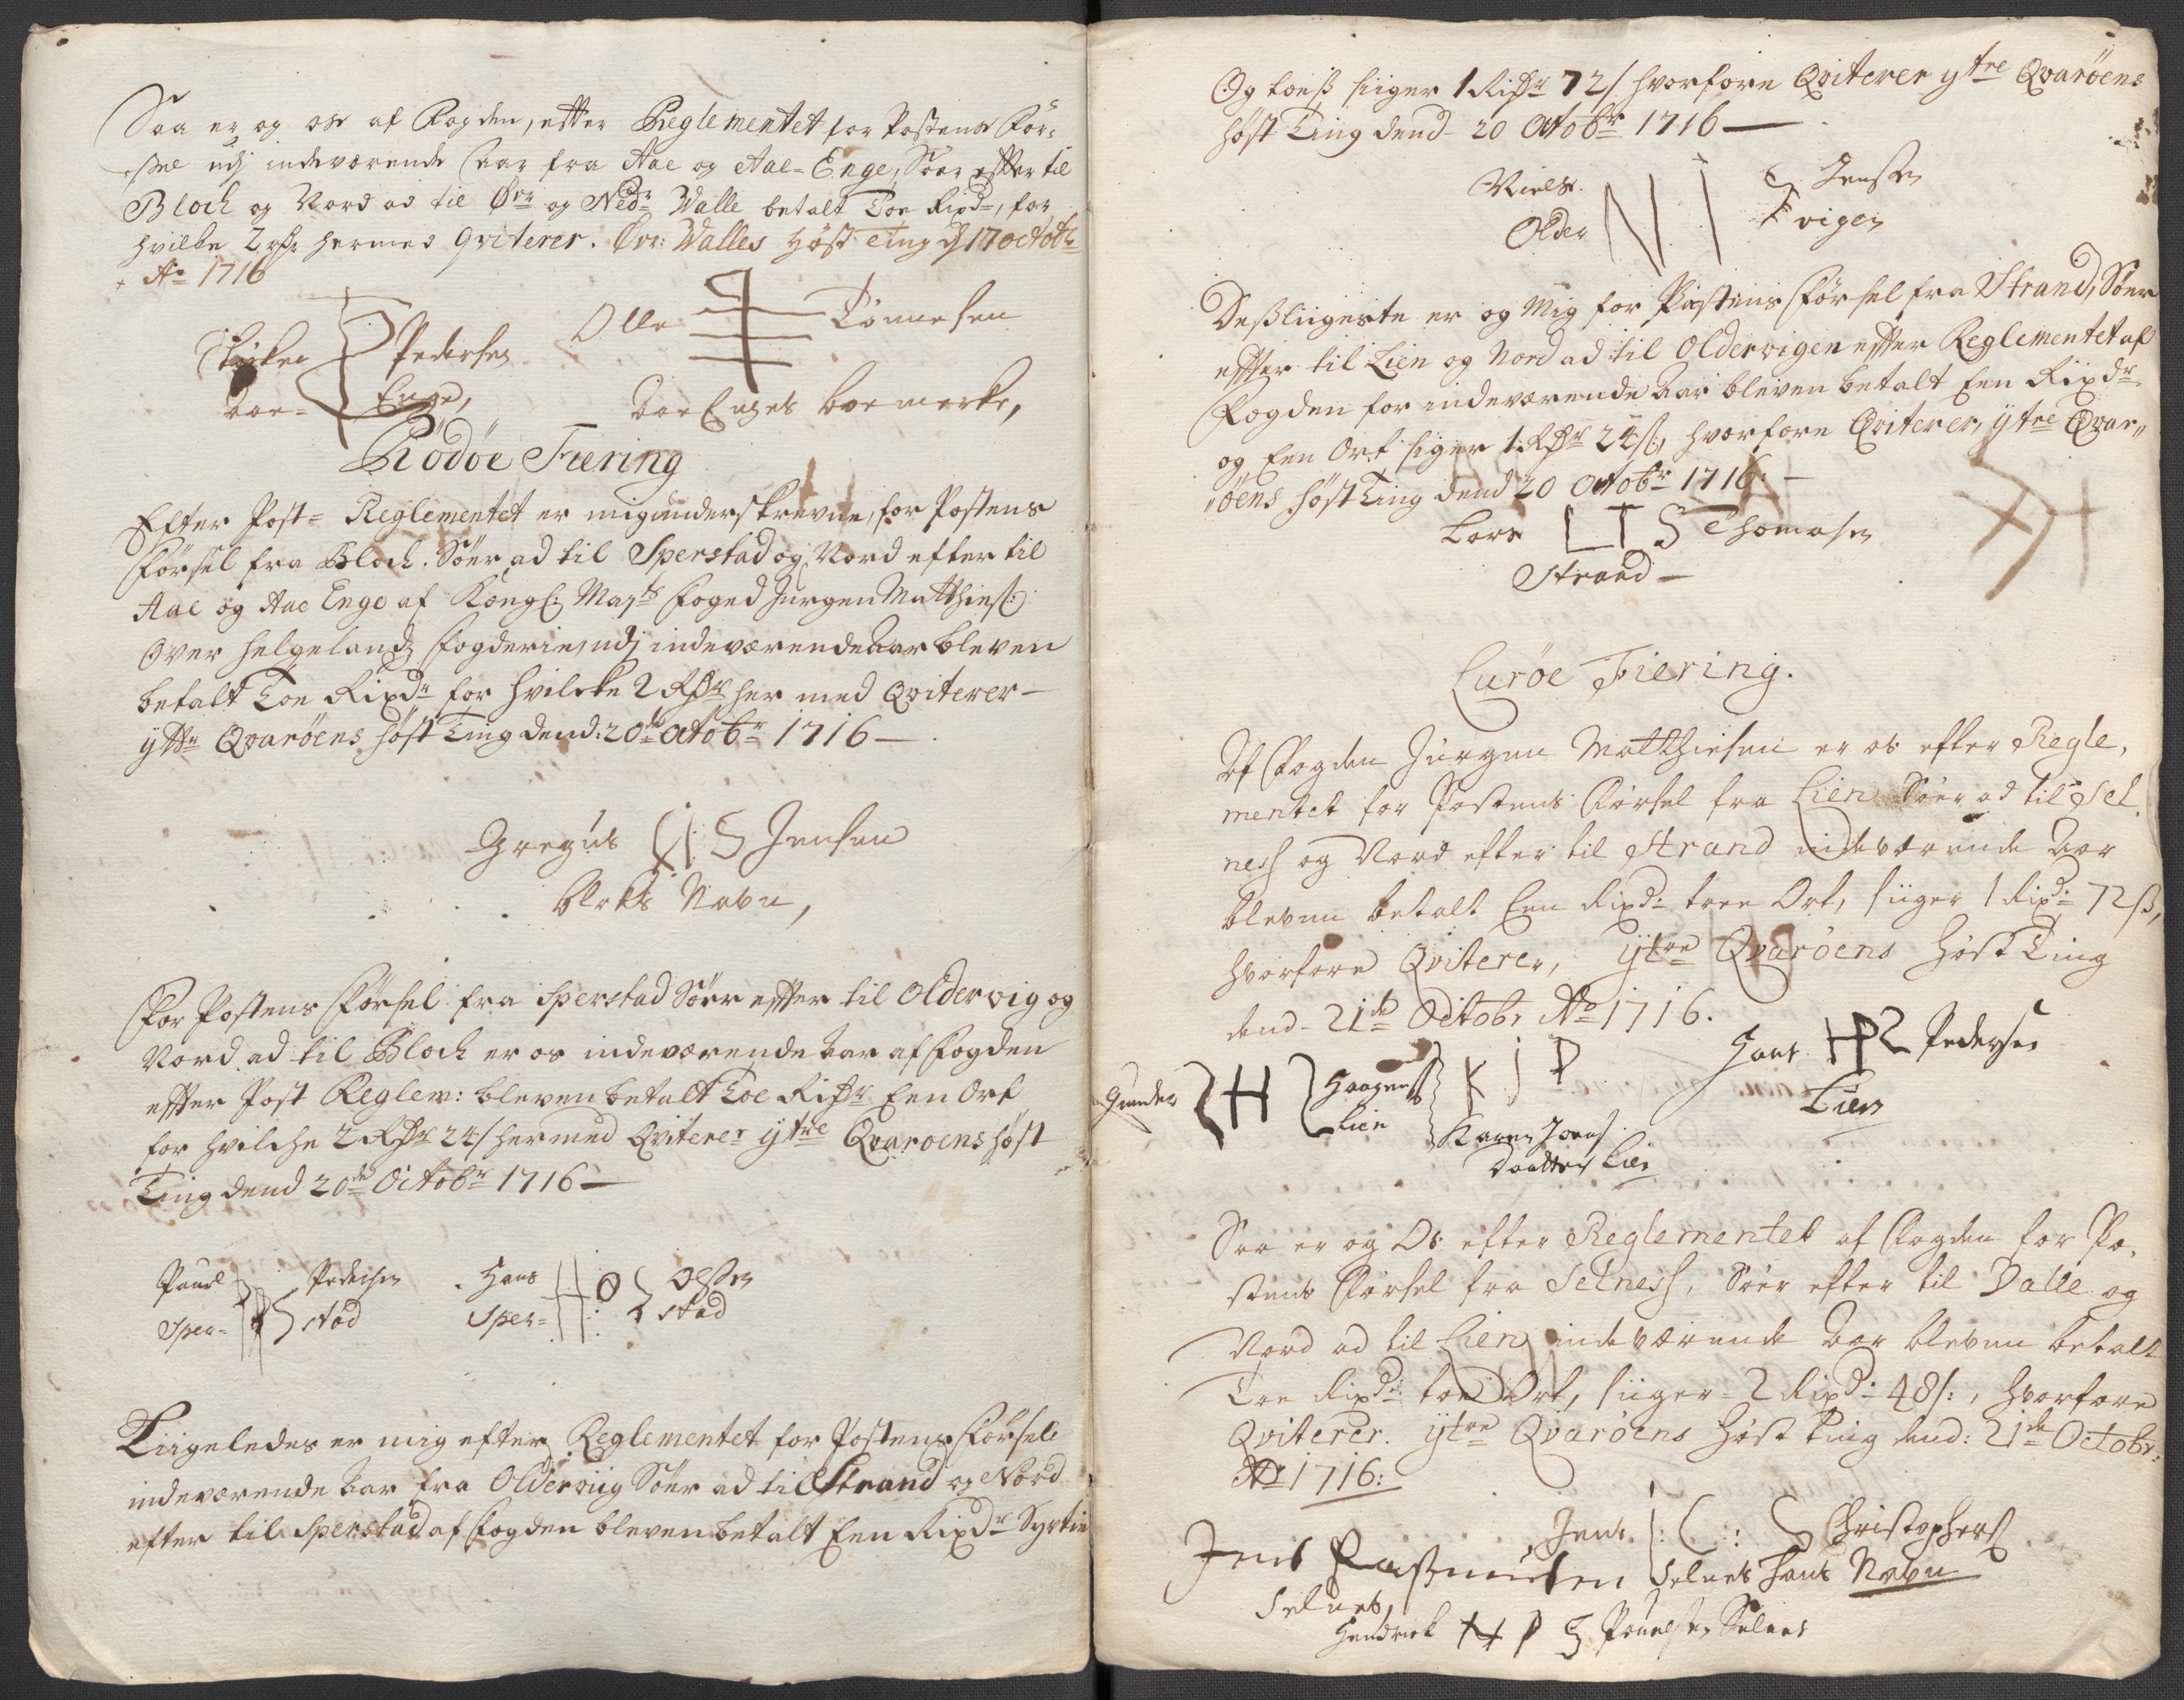 Saa er og oss af Fogden, effter Reglementet for Postens Før-
sel udj indeværende Aar fra Aae og Aae-Enge, Søer effter til
Bloch og Nord ad til Øvr og Nedr Walle betalt Toe Rixdr, for
hvilke 2 rdr hermed qviterer. Øvr: Walles Høst Ting d 17 octobr
Ao 1716
Pedersen Olle Tönnesen
Aae- Enge, Aae Enges boemerke,
Rödöe Fiering
Efter Post- Reglementet er mig underskrevne, for Postens
Førsel fra Bloch. Söer ad til Sperstad og Nord efter til
Aae og Aae Enge af Kongl: Mayts Foged Jurgen Matthies:
Over Helgelands Fogderie, udj indeværende Aar bleven
betalt Toe Rixdr for hvilcke 2 Rdr her med Qviterer —
yttr Qvaröens Höst Ting dend: 20de octobr 1716 —
Gregus G I S Jensen
Bloks Navn,
For Postens Førsel fra Sperstad Sörr effter til Oldervig og
Nord ad til Bloch er os indeværende Aar af Fogden
effter Post Reglem: bleven betalt Toe Rixdr Een Ort
for hvilche 2 Rdr 24 s hermed Qviterer ytre Qvaroens höst
Ting dend 20de Octobr 1716 —
Pauel P P S Pedersen Hans H O S Olssen
Sper- stad Sper- stad
Liigeledes er mig efter Reglementet for Postens Førsele
indeværende Aar fra Olderviig Söer ad til Strand og Nord
efter til Sperstad af Fogden bleven betalt Een Rixdr Syvtie
Og toe ß siiger 1 Rixdr 72 s hvorfore Qviterer ytre Qvaröens
höst Ting dend 20 octobr 1716 —
Niels N I S Jensen
Older vigen
Desßliigeste er og Mig for Postens Førsel fra Strand, Söer
effter til Lien og Nord ad til Oldervigen effter Reglementet af
Fogden for indeværende Aar bleven betalt Een Rixdr
og Een Ort siger 1 Rdr 24 ß, hvorfore Qviterer, ytre Qvar„
„öens höst Ting dend 20 octobr 1716: —
Lars L T S Thomasen
Strand —
Luröe Fiering.
Af Fogden Jürgen Matthiesen er os efter Regle,
mentet for Postens Førsel fra Lien Söer ad til Sel
ness og Nord efter til Strand indeværende Aar
bleven betalt Een Rixd: tree Ort, siiger 1 Rixd: 72 ß,
hvorfore Qviterer, Ytre Qvaröens Höst Ting
dend 21de Octobr Ao 1716.
Gunder H Haagens K I D Hans H P S Pedersen
Lien Karen Joens Lien
Daatter Lien
Saa er og Os efter Reglementet af Fogden for Po,
stens Førsel fra Selness, Söer efter til Valle og
Nord ad til Lien indeværende Aar bleven betalt
Toe Rixd: toe Ort, siiger 2 Rixd: 48 s:, hvorfore
Qviterer. ytre Qvaröens Höst Ting dend: 21de Octobr:
Ao 1716:
Jens I: C: S Christophers
Jens Rasmusen Selnes Hans Navn
Selnes,
Hendrick H P S Pouelsen Selnes